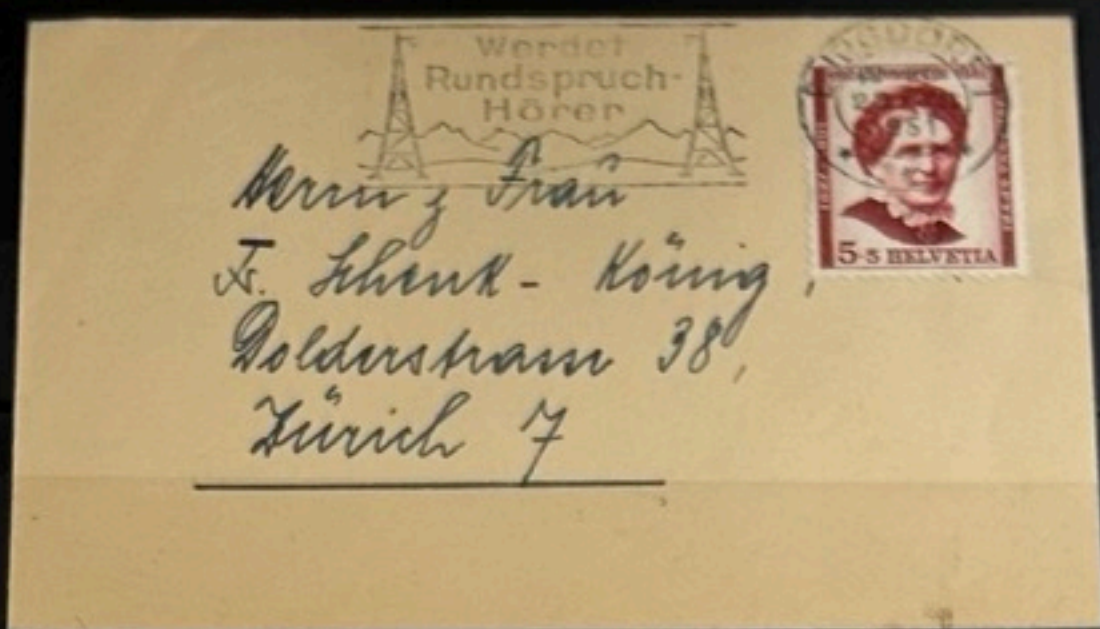 Werdet
Rundspruch-
Hörer
1951
5+5 HELVETIA
Herrn & Frau
F. Schenk - König,
Dolderstrasse 38,
Zürich 7